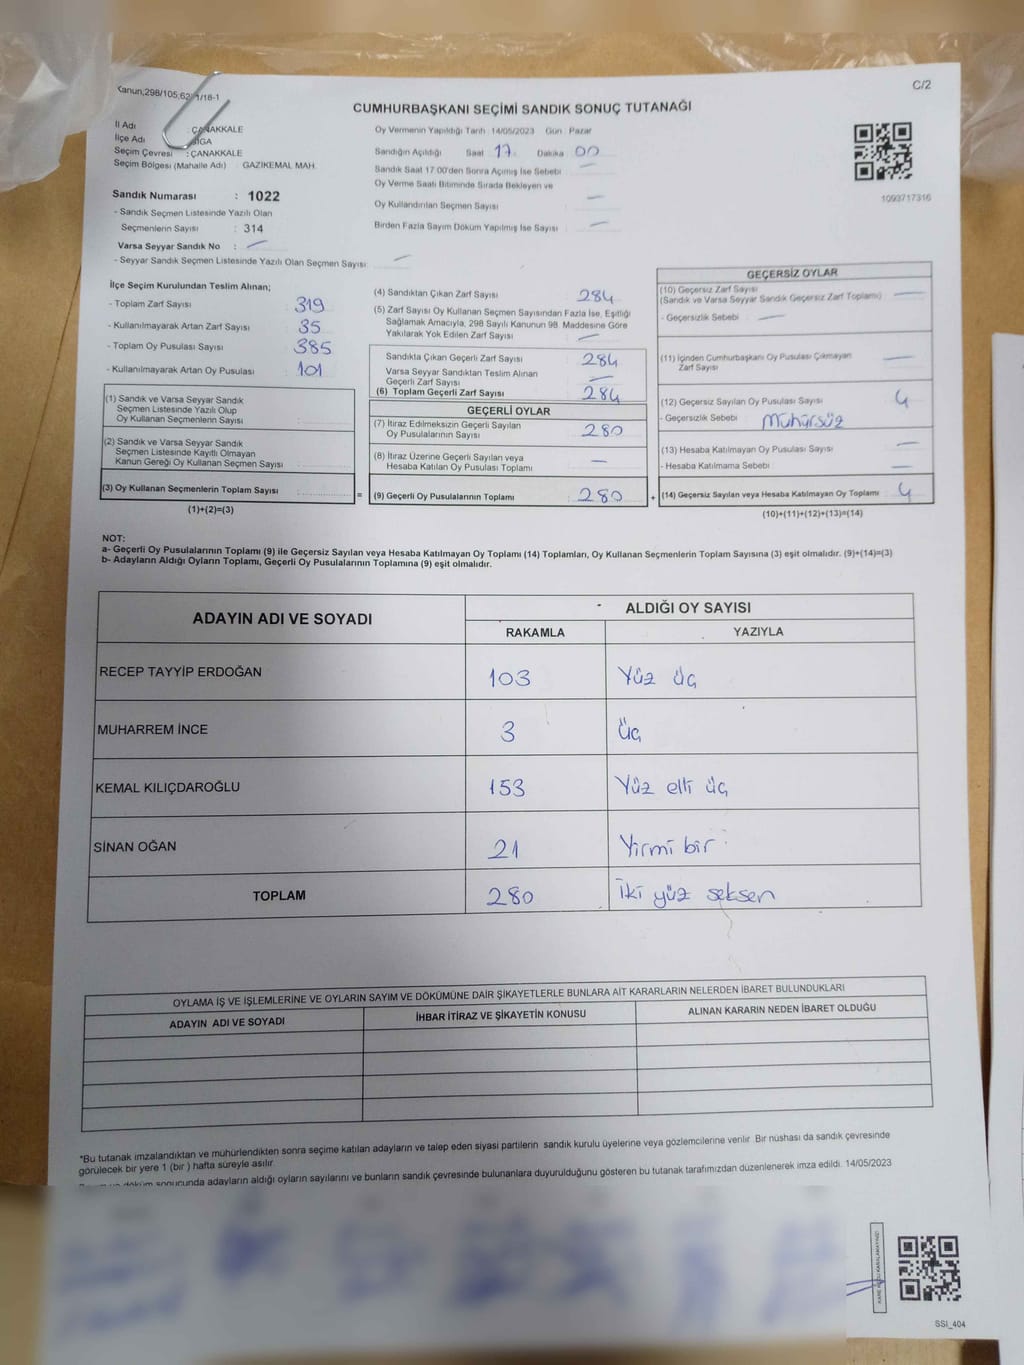 C/2
CUMHURBAŞKANI SEÇİMİ SANDIK SONUÇ TUTANAĞI
İl Adı : ÇANAKKALE
İlçe Adı
Seçim Çevresi : ÇANAKKALE
Seçim Bölgesi (Mahalle Adı) GAZİKEMAL MAH.
Sandık Numarası : 1022
- Sandık Seçmen Listesinde Yazılı Olan
Seçmenlerin Sayısı : 314
Varsa Seyyar Sandık No : —
- Seyyar Sandık Seçmen Listesinde Yazılı Olan Seçmen Sayısı: —
Oy Vermenin Yapıldığı Tarih 14/05/2023 Gün Pazar
Sandığın Açıldığı Saat 17 Dakika 00
Sandık Saat 17 00'den Sonra Açılmış İse Sebebi —
Oy Verme Saati Bitiminde Sırada Bekleyen ve
Oy Kullandırılan Seçmen Sayısı —
Birden Fazla Sayım Döküm Yapılmış İse Sayısı —
1093717316
İlçe Seçim Kurulundan Teslim Alınan;
- Toplam Zarf Sayısı 319
- Kullanılmayarak Artan Zarf Sayısı 35
- Toplam Oy Pusulası Sayısı 385
- Kullanılmayarak Artan Oy Pusulası 101
(1) Sandık ve Varsa Seyyar Sandık
Seçmen Listesinde Yazılı Olup
Oy Kullanan Seçmenlerin Sayısı :
(2) Sandık ve Varsa Seyyar Sandık
Seçmen Listesinde Kayıtlı Olmayan
Kanun Gereği Oy Kullanan Seçmen Sayısı :
(3) Oy Kullanan Seçmenlerin Toplam Sayısı : =
(1)+(2)=(3)
(4) Sandıktan Çıkan Zarf Sayısı 284
(5) Zarf Sayısı Oy Kullanan Seçmen Sayısından Fazla İse, Eşitliği
Sağlamak Amacıyla, 298 Sayılı Kanunun 98. Maddesine Göre
Yakılarak Yok Edilen Zarf Sayısı —
Sandıkta Çıkan Geçerli Zarf Sayısı 284
Varsa Seyyar Sandıktan Teslim Alınan
Geçerli Zarf Sayısı —
(6) Toplam Geçerli Zarf Sayısı 284
GEÇERLİ OYLAR
(7) İtiraz Edilmeksizin Geçerli Sayılan
Oy Pusulalarının Sayısı 280
(8) İtiraz Üzerine Geçerli Sayılan veya
Hesaba Katılan Oy Pusulası Toplamı —
(9) Geçerli Oy Pusulalarının Toplamı : 280 +
GEÇERSİZ OYLAR
(10) Geçersiz Zarf Sayısı —
(Sandık ve Varsa Seyyar Sandık Geçersiz Zarf Toplamı)
- Geçersizlik Sebebi : —
(11) İçinden Cumhurbaşkanı Oy Pusulası Çıkmayan —
Zarf Sayısı
(12) Geçersiz Sayılan Oy Pusulası Sayısı 4
- Geçersizlik Sebebi : Mühürsüz
(13) Hesaba Katılmayan Oy Pusulası Sayısı —
- Hesaba Katılmama Sebebi : —
(14) Geçersiz Sayılan veya Hesaba Katılmayan Oy Toplamı 4
(10)+(11)+(12)+(13)=(14)
NOT:
a- Geçerli Oy Pusulalarının Toplamı (9) ile Geçersiz Sayılan veya Hesaba Katılmayan Oy Toplamı (14) Toplamları, Oy Kullanan Seçmenlerin Toplam Sayısına (3) eşit olmalıdır. (9)+(14)=(3)
b- Adayların Aldığı Oyların Toplamı, Geçerli Oy Pusulalarının Toplamına (9) eşit olmalıdır.
ADAYIN ADI VE SOYADI ALDIĞI OY SAYISI
RAKAMLA YAZIYLA
RECEP TAYYİP ERDOĞAN 103 Yüz üç
MUHARREM İNCE 3 Üç
KEMAL KILIÇDAROĞLU 153 Yüz elli üç
SİNAN OĞAN 21 Yirmi bir
TOPLAM 280 İki yüz seksen
OYLAMA İŞ VE İŞLEMLERİNE VE OYLARIN SAYIM VE DÖKÜMÜNE DAİR ŞİKAYETLERLE BUNLARA AİT KARARLARIN NELERDEN İBARET BULUNDUKLARI
ADAYIN ADI VE SOYADI İHBAR İTİRAZ VE ŞİKAYETİN KONUSU ALINAN KARARIN NEDEN İBARET OLDUĞU
*Bu tutanak imzalandıktan ve mühürlendikten sonra seçime katılan adayların ve talep eden siyasi partilerin sandık kurulu üyelerine veya gözlemcilerine verilir. Bir nüshası da sandık çevresinde
görülecek bir yere 1 (bir) hafta süreyle asılır
sonucunda adayların aldığı oyların sayılarını ve bunların sandık çevresinde bulunanlara duyurulduğunu gösteren bu tutanak tarafımızdan düzenlenerek imza edildi. 14/05/2023
SSI_404